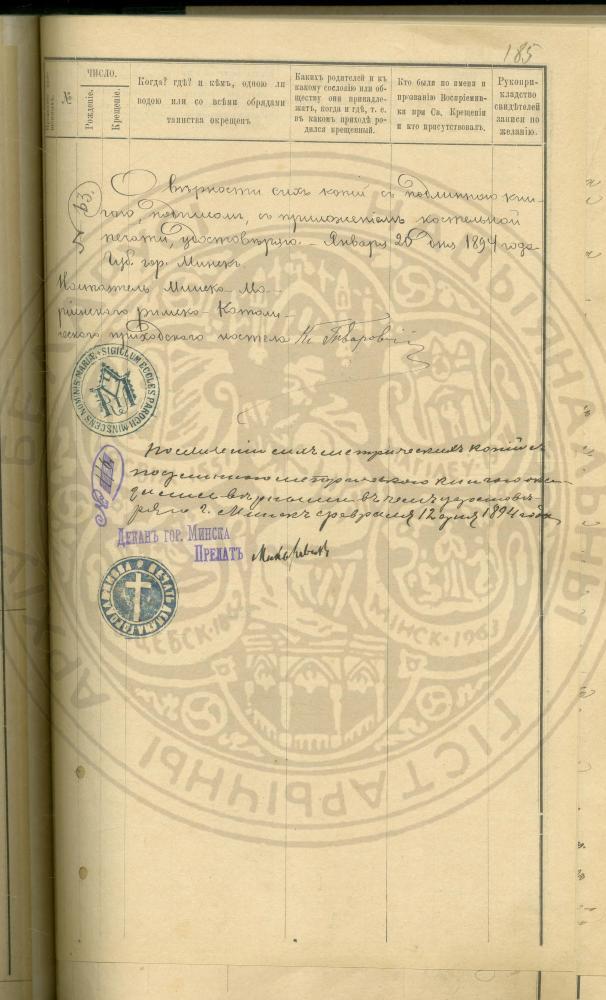 185
№
ЧИСЛО.
Рожденіе.
Крещеніе.
Когда? гдѣ? и кѣмъ, одною ли
водою или со всѣми обрядами
таинства окрещенъ
Какихъ родителей и къ
какому сословію или об-
ществу они принадле-
жатъ, когда и гдѣ, т. е.
въ какомъ приходѣ ро-
дился крещенный.
Кто были по имени и
прозванію Воспріемни-
ки при Св. Крещеніи
и кто присутствовалъ.
Рукопри-
кладство
свидѣтелей
записи по
желанію.
№ 63.
О вѣрности сихъ копій съ подлинною кни-
гою, подписом, съ приложеніемъ костельной
печати, удостовѣряю. Января 20 дня 1894 года
Губ. гор. Минскъ.
Настоятель Минско-Ма-
ріинскаго римско-Католи-
ческаго приходскаго костела
SIGILLUM ECCLES PAROCH MINSCENS NOMINIS MARIÆ
метрическихъ копій съ
вѣрными въ чемъ удостовѣ-
ряю г. Минскъ февраля 12 дня 1894 года
ДЕКАНЪ ГОР. МИНСКА
ПРЕЛАТЪ
ПЕЧАТЬ
ГІСТАРЫЧНЫ
МІНСК · 1963